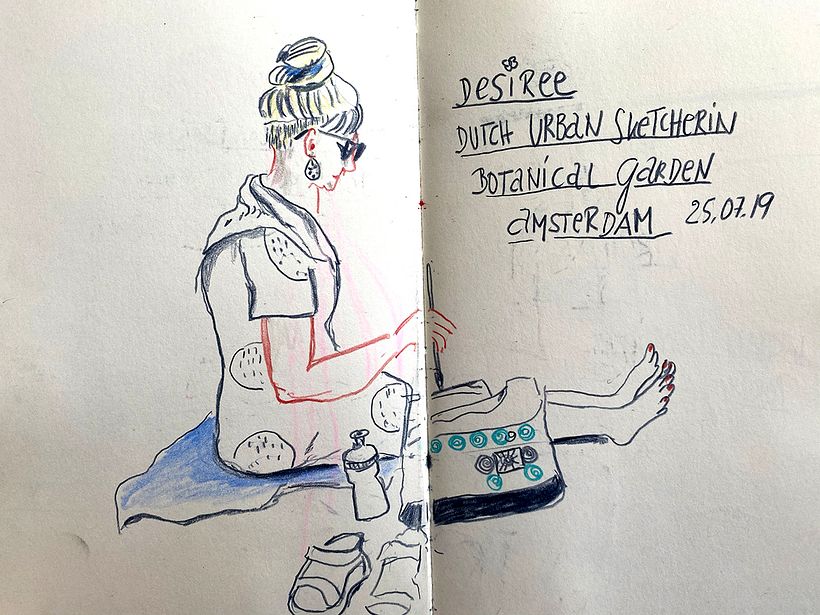 DESiREE
DUTCH URBAN SKETCHERIN
BOTANICAL GARDEN
AMSTERDAM 25.07.19